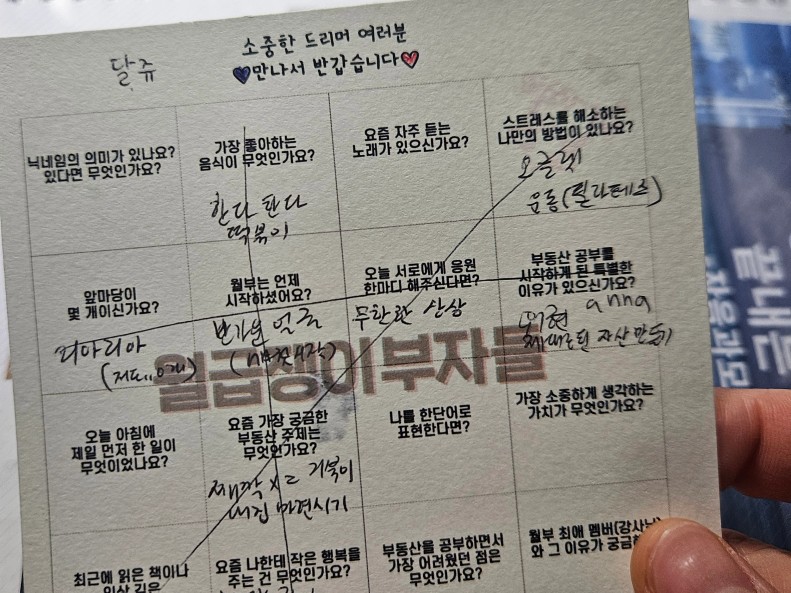 달쥬
소중한 드리머 여러분
만나서 반갑습니다
닉네임의 의미가 있나요?
있다면 무엇인가요?
가장 좋아하는
음식이 무엇인가요?
한다 한다
떡볶이
요즘 자주 듣는
노래가 있으신가요?
스트레스를 해소하는
나만의 방법이 있나요?
운동(필라테스)
앞마당이
몇 개이신가요?
리아리아
(저도..0개)
월부는 언제
시작하셨어요?
반가운 얼굴
오늘 서로에게 응원
한마디 해주신다면?
무한한 상상
부동산 공부를
시작하게 된 특별한
이유가 있으신가요?
anna
제대로된 자산 만들기
월급쟁이부자들
오늘 아침에
제일 먼저 한 일이
무엇이었나요?
요즘 가장 궁금한
부동산 주제는
무엇인가요?
거북이
내집 마련시기
나를 한단어로
표현한다면?
가장 소중하게 생각하는
가치가 무엇인가요?
최근에 읽은 책이나
인상 깊은
요즘 나한테 작은 행복을
주는 건 무엇인가요?
부동산을 공부하면서
가장 어려웠던 점은
무엇인가요?
월부 최애 멤버(강사님)
와 그 이유가 궁금
끝내는